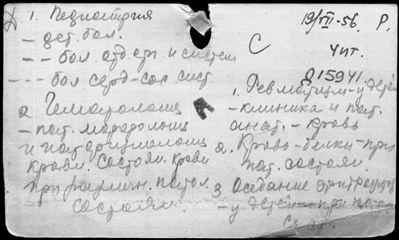 Д 1. Педиатрия
– дет. бол.
– – бол. отд орг. и систем
– – – бол серд-сос сист.
2 Гематология
– пат. морфология
и пат физиология
крови. Состоян. крови
при различн. патол.
состоян.
19/VII-56. Р.
С
Чит.
915941.
1. Ревматизм – у детей
– клиника и пат.
анат. – кровь
2. Кровь – белки – при
пат. состоян
3 Оседание эритроцитов
– у детей – при